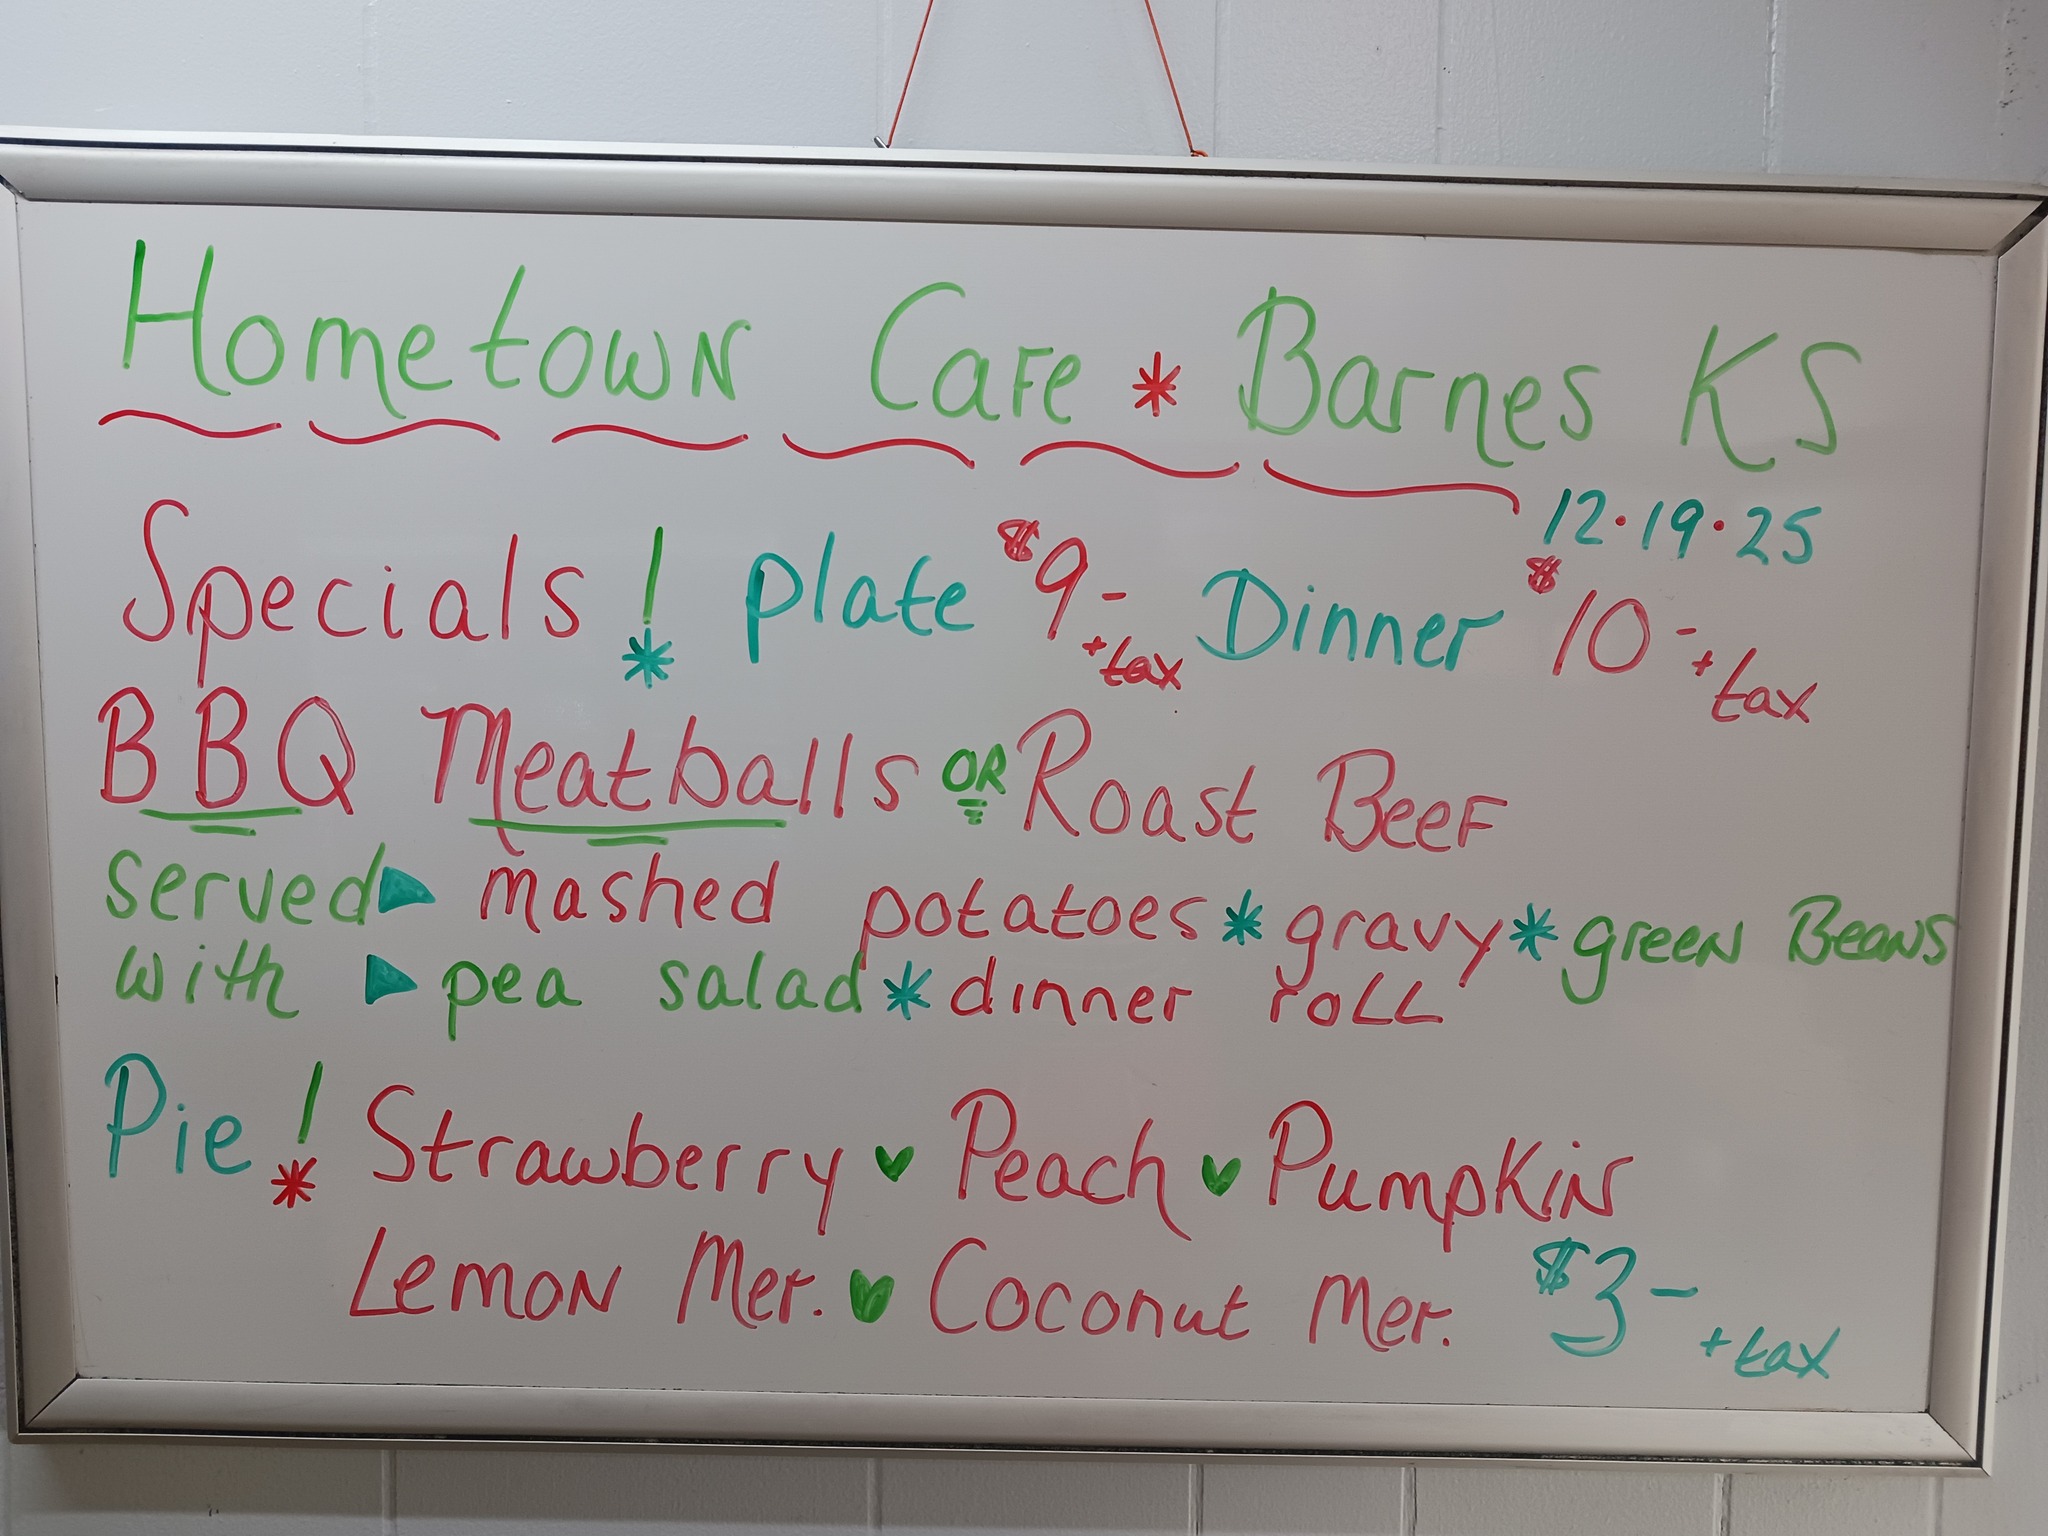 Hometown Cafe * Barnes KS
12·19·25
Specials! plate $9- +tax Dinner $10- +tax
BBQ Meatballs OR Roast Beef
served ▶ mashed potatoes * gravy * green Beans
with ▶ pea salad * dinner roll
Pie! Strawberry ♥ Peach ♥ Pumpkin
Lemon Mer. ♥ Coconut Mer. $3- +tax